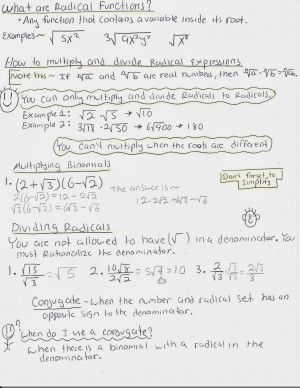 What are Radical Functions?
• Any function that contains a variable inside its root.
Examples ~ √5x² 3√9x²y⁷ √x⁸
How to multiply and divide Radical Expressions
Note this ~ If ⁿ√a and ⁿ√b are real numbers, then ⁿ√a · ⁿ√b = ⁿ√ab.
You can only multiply and divide Radicals to Radicals.
Example 1: √2 · √5 → √10
Example 2: 3√18 · 2√50 → 6√900 → 180
You can't multiply when the roots are different
Multiplying Binomials
Don't forget to Simplify
1. (2+√3)(6-√2)
The answer is ~
2(6-√2) = 12 - 2√2
12 - 2√2 + 6√3 - √6
√3(6-√2) = 6√3 - √6
Dividing Radicals
You are not allowed to have (√ ) in a denominator. You
must Rationalize the denominator.
1. √15/√3 = √5 2. 10√8/2√2 = 5√4 = 10 3. 2/√3 · √3/√3 = 2√3/3
Conjugate - when the number and radical set has an
opposite sign to the denominator.
When do I use a conjugate?
When there is a binomial with a radical in the
denominator.